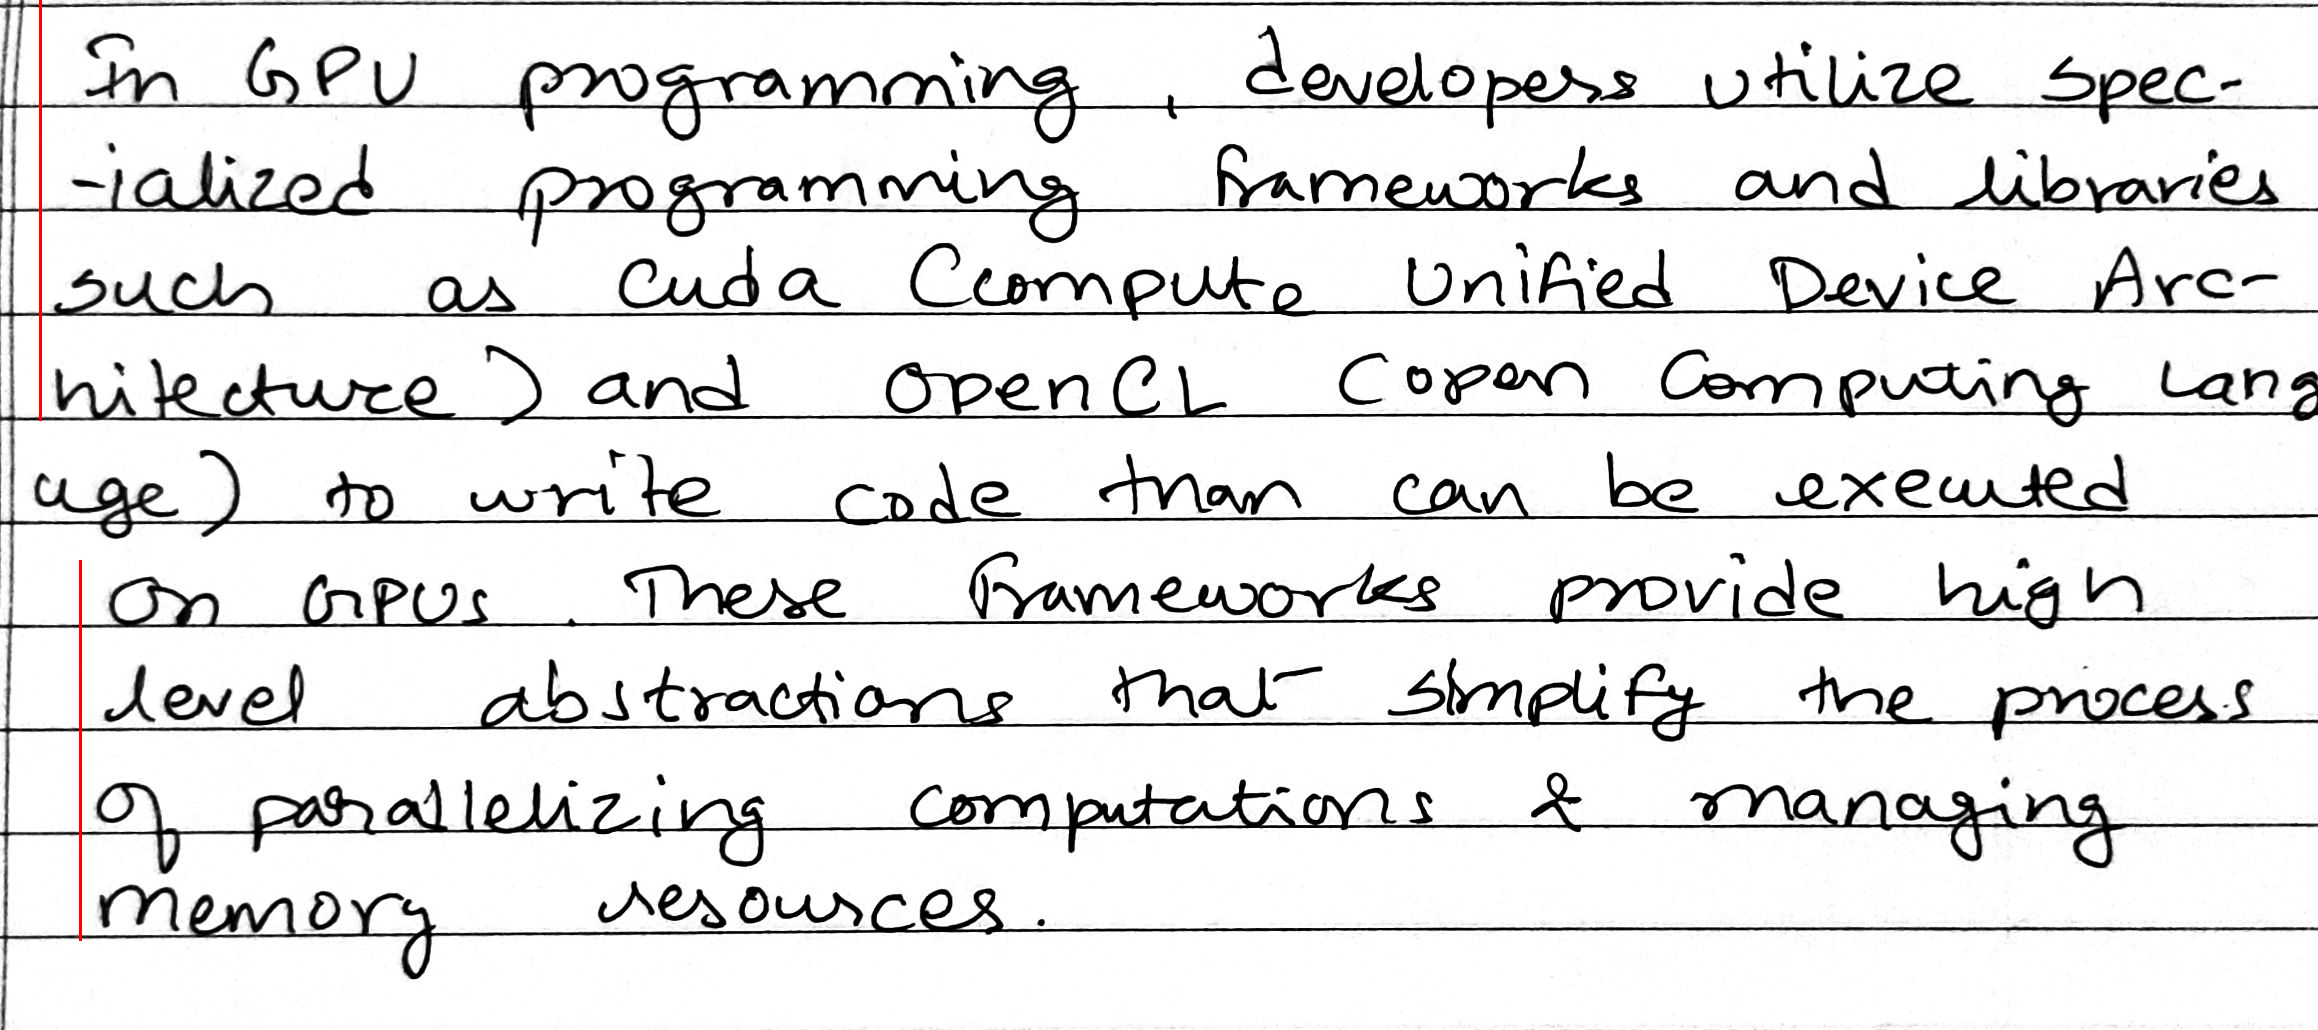 In GPU programming, developers utilize spec-
-ialized programming frameworks and libraries
such as Cuda (compute Unified Device Arc-
hitecture) and OpenCL (open Computing Lang
uage) to write code than can be executed
on GPUs. These frameworks provide high
level abstractions that simplify the process
of parallelizing computations & managing
memory resources.